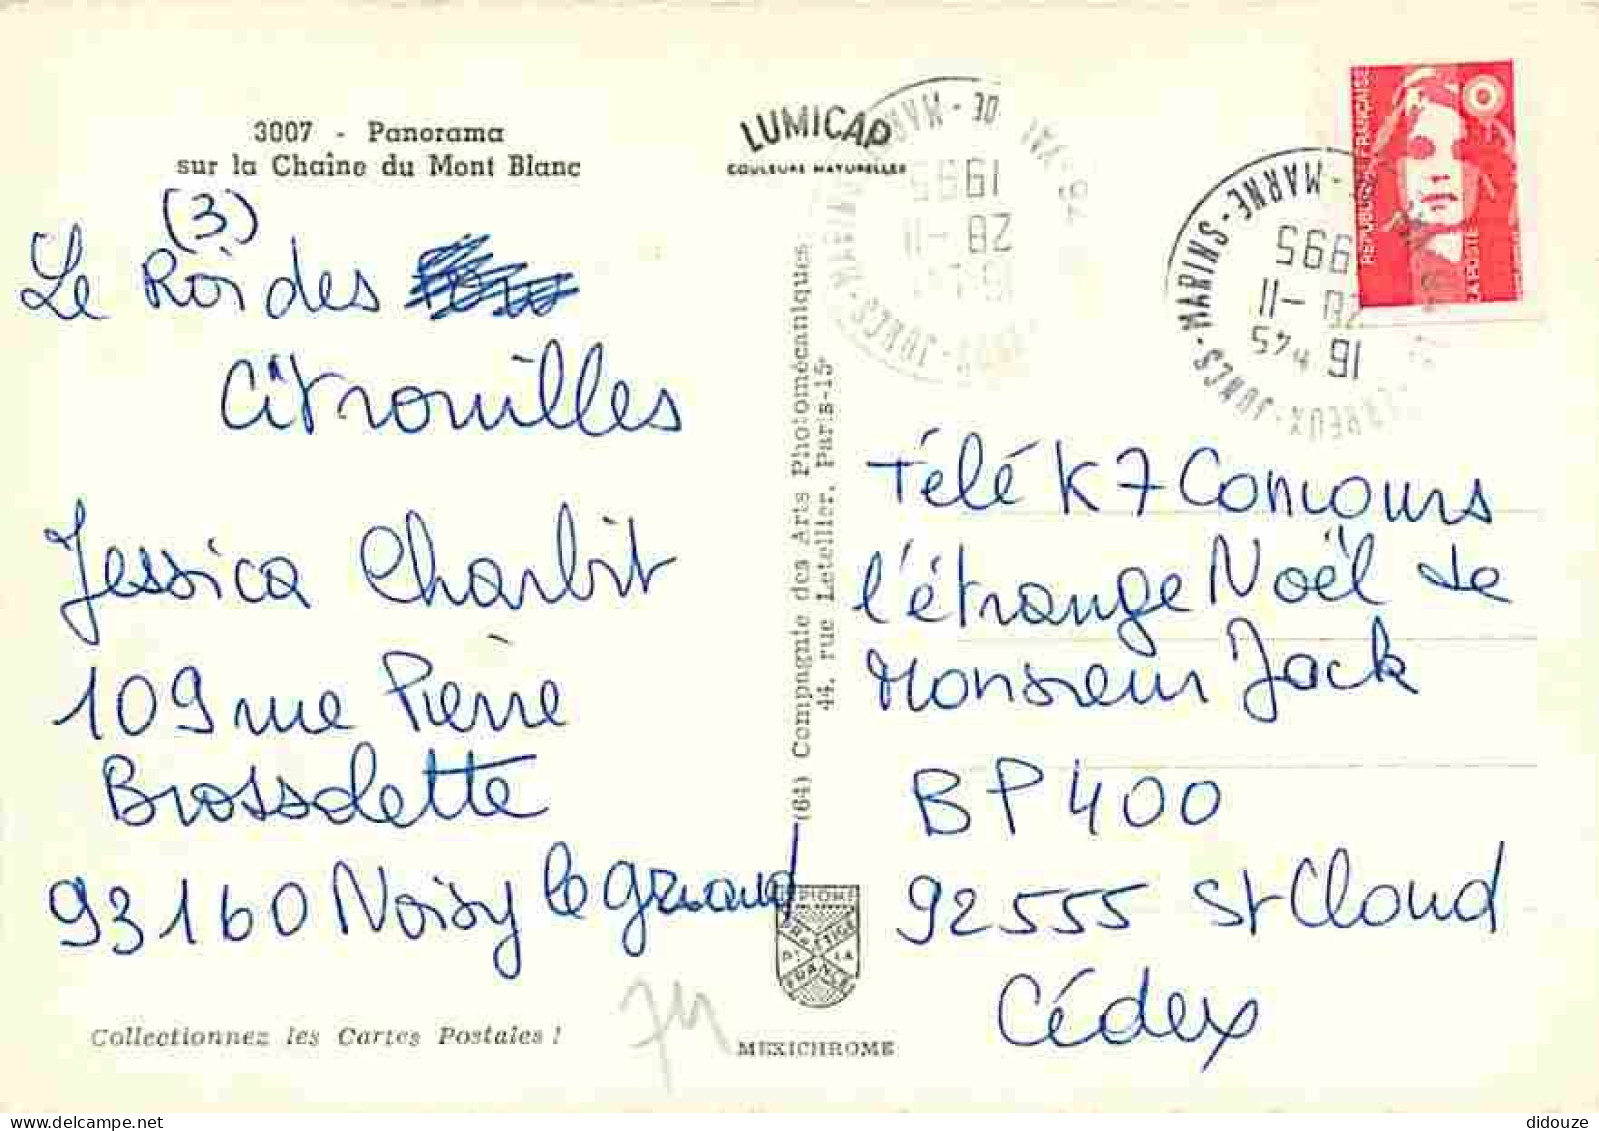 3007 - Panorama
sur la Chaîne du Mont Blanc
(3)
Le Roi des
Citrouilles
Jessica Charbit
109 rue Pierre
Brossolette
93160 Noisy le grand
Collectionnez les Cartes Postales !
LUMICAP
COULEURS NATURELLES
(64) Compagnie des Arts Photomécaniques
44, rue Letellier, Paris-15e
PRESTIGE
DE LA
FRANCE
MEXICHROME
DE - MAR
1995
28 -11
94
JONCS - MARINS
RÉPUBLIQUE FRANÇAISE
LA POSTE
JONCS - MARINS - MARNE
995
28 -11
16 H45
Télé K7 Concours
l'étrange Noël de
Monsieur Jack
BP 400
92555 St Cloud
Cédex
didouze